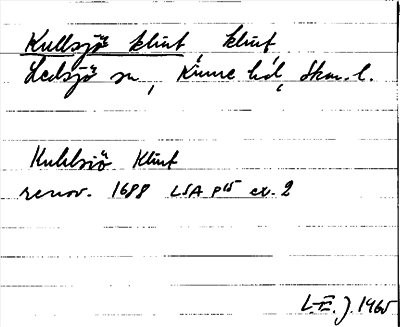 Kullsjö klint, klint,
Ledsjö sn, Kinne hd, Skar. l.
Kuhlsiö Klint
renov. 1688 LSA P15 ex. 2
L-E. J. 1965